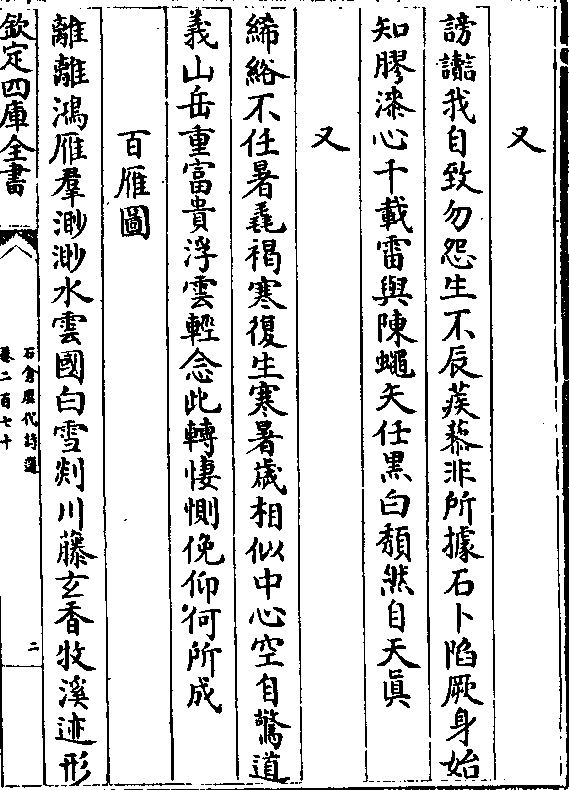 又
謗讟我自致勿怨生不辰蒺藜非所據石卜陷厥身始
知膠漆心十載雷與陳蠅矢任黑白頽然自天眞
又
絺綌不任暑毳褐寒復生寒暑歳相似中心空自驚道
義山岳重富貴浮雲輕念此轉悽惻俛仰何所成
百雁圖
離離鴻雁羣渺渺水雲國白雪剡川藤玄香牧溪迹形
欽定四庫全書
石倉歴代詩選
卷二百七十
二